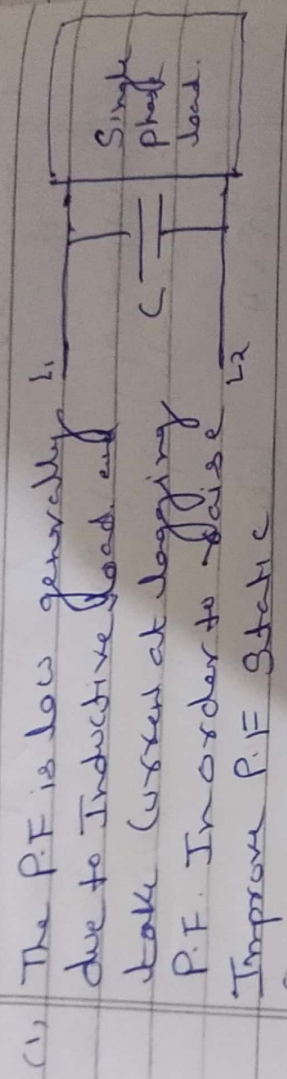 (1) The P.F is low generally
due to Inductive load. and
take Current at lagging
P.F. In order to raise
Improve P.F Static
L1
L2
C
Single
phase
load.